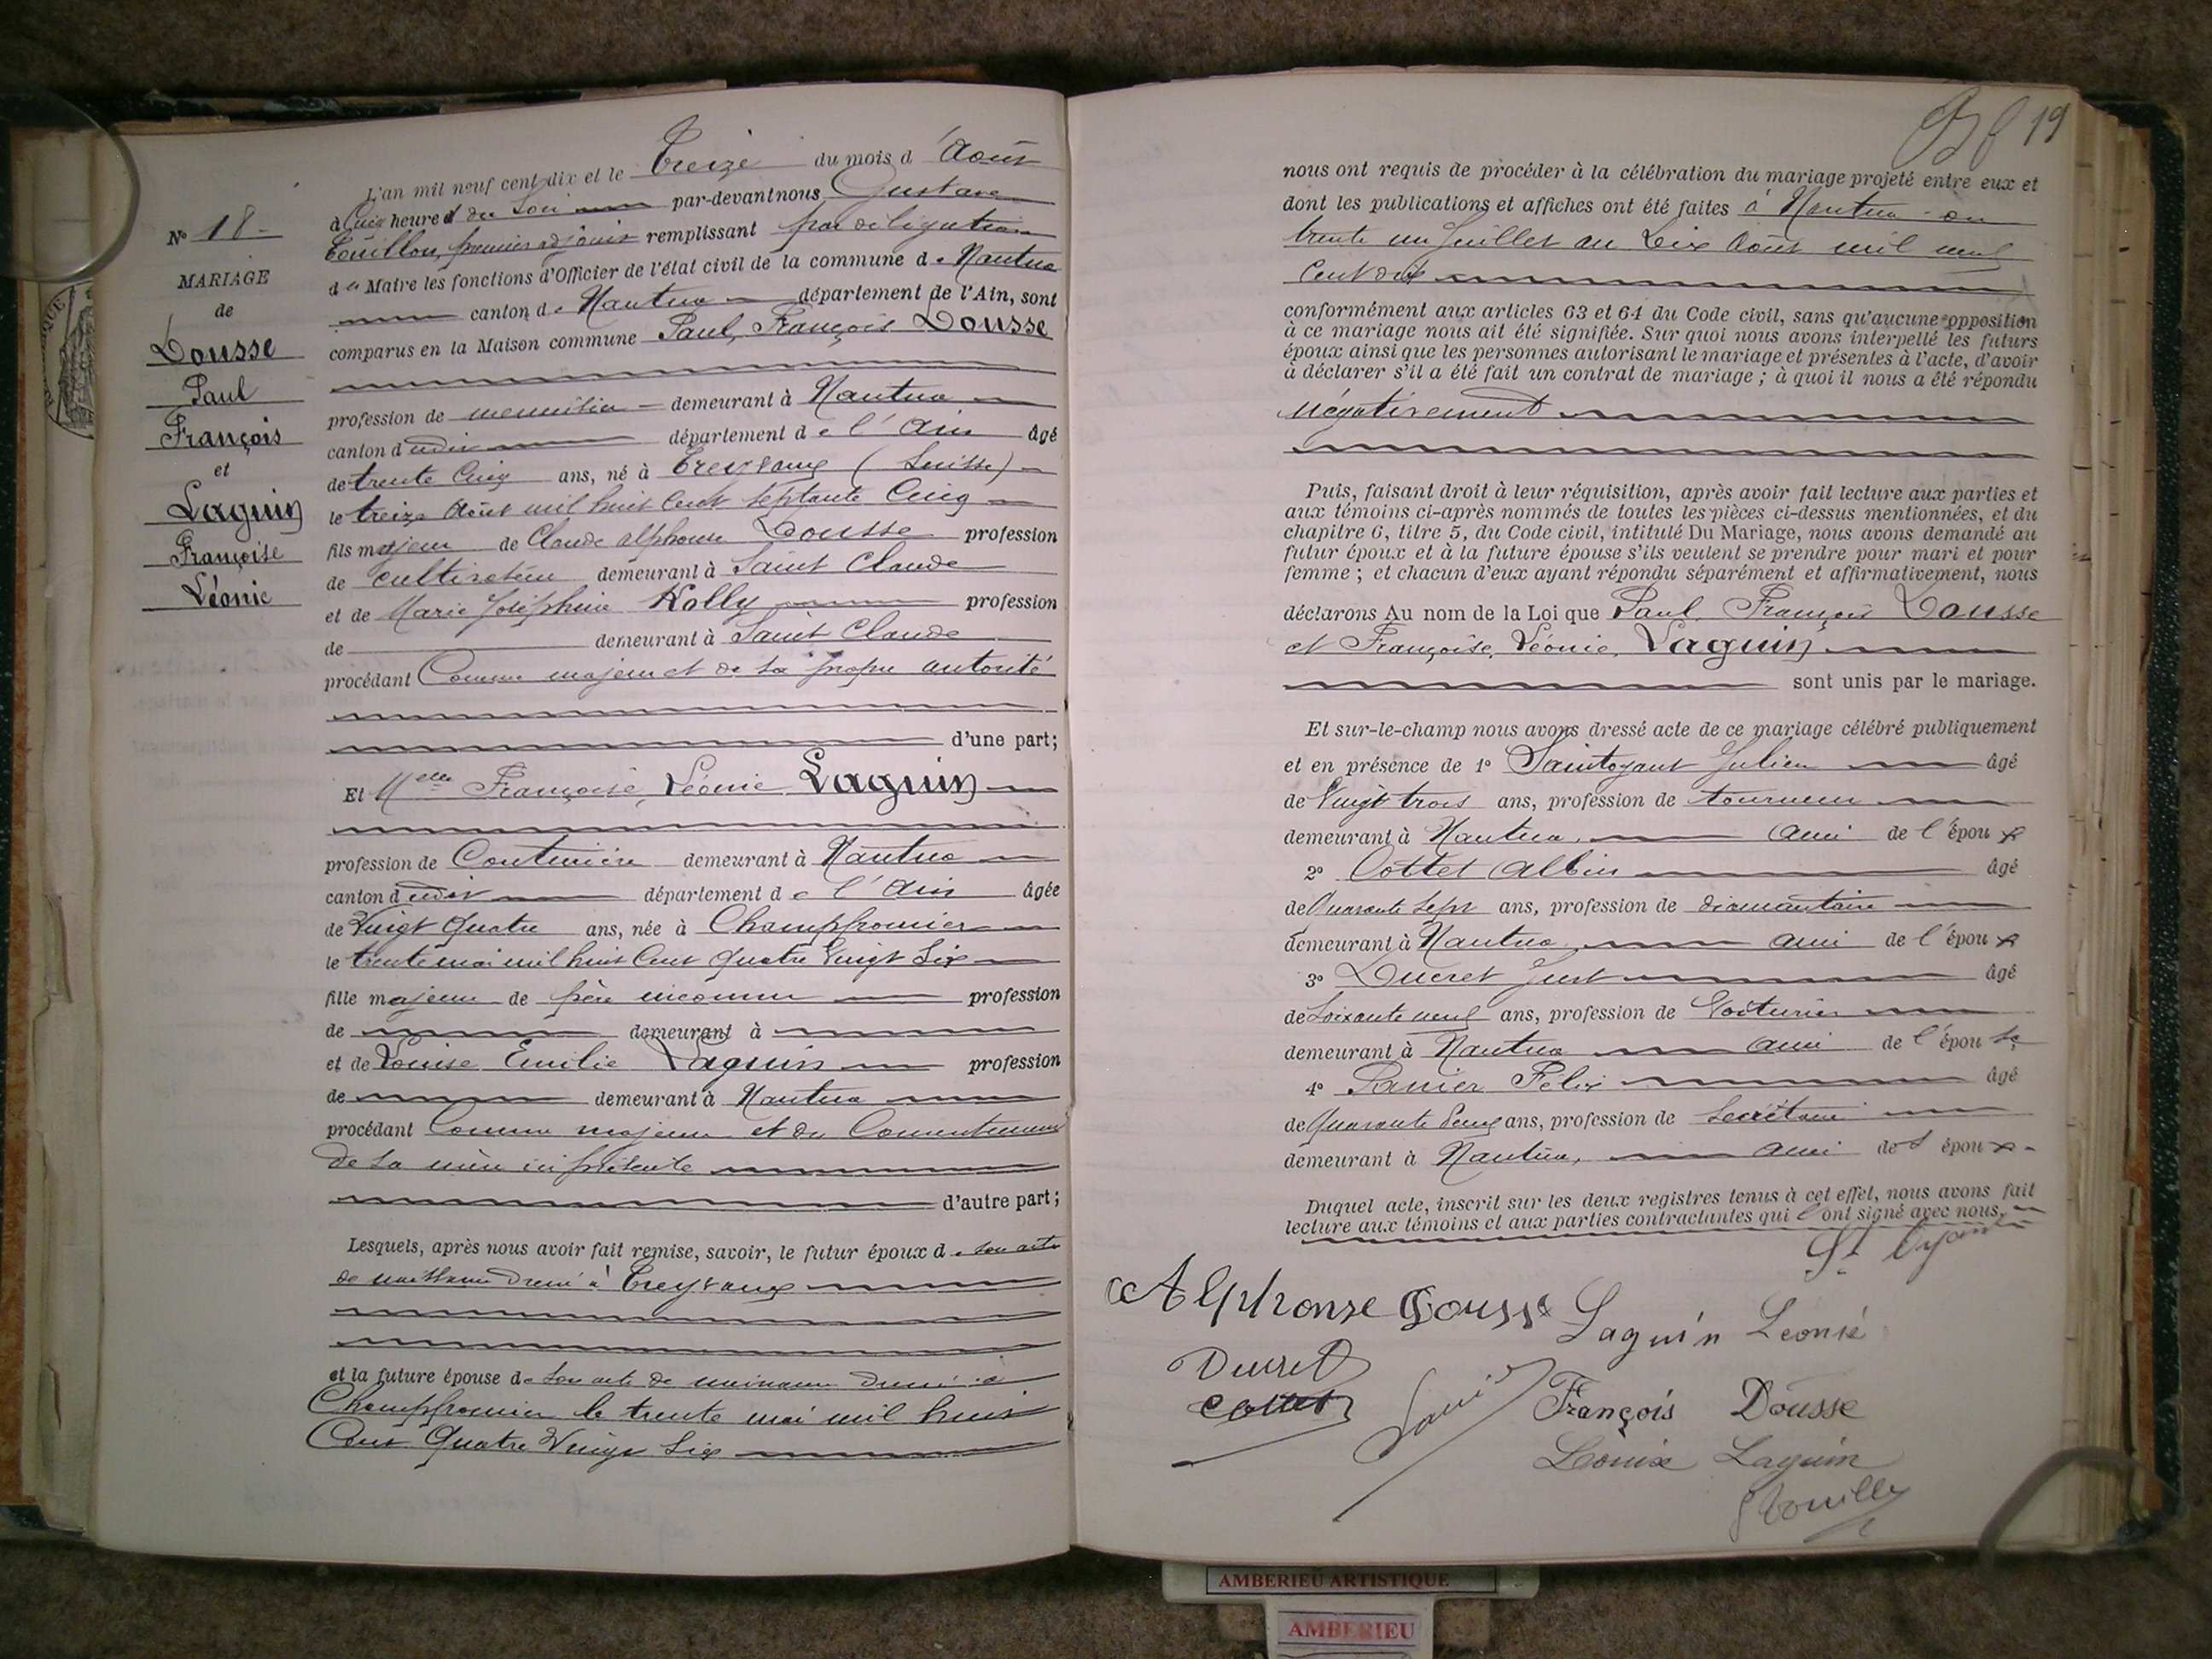 N° 18
MARIAGE
de
Dousse
Paul
François
et
Laguin
Françoise
Léonie
L'an mil neuf cent dix et le Treize du mois d'Août
à Cinq heures du Soir par-devant nous Gustave
Touillon, premier adjoint remplissant par délégation
du Maire les fonctions d'Officier de l'état civil de la commune de Nantua
canton de Nantua département de l'Ain, sont
comparus en la Maison commune Paul, François Dousse
profession de menuisier demeurant à Nantua
canton dudit département de l'Ain âgé
de trente Cinq ans, né à Treyvaux (Suisse)
le treize Août mil huit Cent Septante Cinq
fils majeur de Claude Alphonse Dousse profession
de cultivateur demeurant à Saint Claude
et de Marie Joséphine Kolly profession
de demeurant à Saint Claude
procédant Comme majeur et de sa propre autorité
d'une part;
Et Melle Françoise, Léonie Laguin
profession de Couturière demeurant à Nantua
canton dudit département de l'Ain âgée
de Vingt Quatre ans, née à Champfromier
le trente mai mil huit Cent Quatre Vingt Six
fille majeure de père inconnu profession
de demeurant à
et de Louise Emilie Laguin profession
de demeurant à Nantua
procédant Comme majeure et du Consentement
de sa mère ici présente
d'autre part;
Lesquels, après nous avoir fait remise, savoir, le futur époux de son acte
de naissance dressé à Treyvaux
et la future épouse de son acte de naissance dressé à
Champfromier le trente mai mil huit
Cent Quatre Vingt Six
19
nous ont requis de procéder à la célébration du mariage projeté entre eux et
dont les publications et affiches ont été faites à Nantua du
trente un Juillet au Dix Août mil neuf
Cent dix
conformément aux articles 63 et 64 du Code civil, sans qu'aucune opposition
à ce mariage nous ait été signifiée. Sur quoi nous avons interpellé les futurs
époux ainsi que les personnes autorisant le mariage et présentes à l'acte, d'avoir
à déclarer s'il a été fait un contrat de mariage ; à quoi il nous a été répondu
négativement
Puis, faisant droit à leur réquisition, après avoir fait lecture aux parties et
aux témoins ci-après nommés de toutes les pièces ci-dessus mentionnées, et du
chapitre 6, titre 5, du Code civil, intitulé Du Mariage, nous avons demandé au
futur époux et à la future épouse s'ils veulent se prendre pour mari et pour
femme ; et chacun d'eux ayant répondu séparément et affirmativement, nous
déclarons Au nom de la Loi que Paul, François Dousse
et Françoise, Léonie, Laguin
sont unis par le mariage.
Et sur-le-champ nous avons dressé acte de ce mariage célébré publiquement
et en présence de 1° Saintoyant Julien âgé
de Vingt trois ans, profession de tourneur
demeurant à Nantua, ami de l'époux
2° Cottet Albin âgé
de Quarante Sept ans, profession de diamantaire
demeurant à Nantua, ami de l'époux
3° Ducret Just âgé
de Soixante neuf ans, profession de Voiturier
demeurant à Nantua ami de l'épouse
4° Panier Félix âgé
de Quarante Deux ans, profession de Secrétaire
demeurant à Nantua, ami de l'époux
Duquel acte, inscrit sur les deux registres tenus à cet effet, nous avons fait
lecture aux témoins et aux parties contractantes qui l'ont signé avec nous.
Alphonse Dousse
Laguin Léonie
Ducret
Cottet
François Dousse
Louise Laguin
AMBERIEU ARTISTIQUE
AMBERIEU